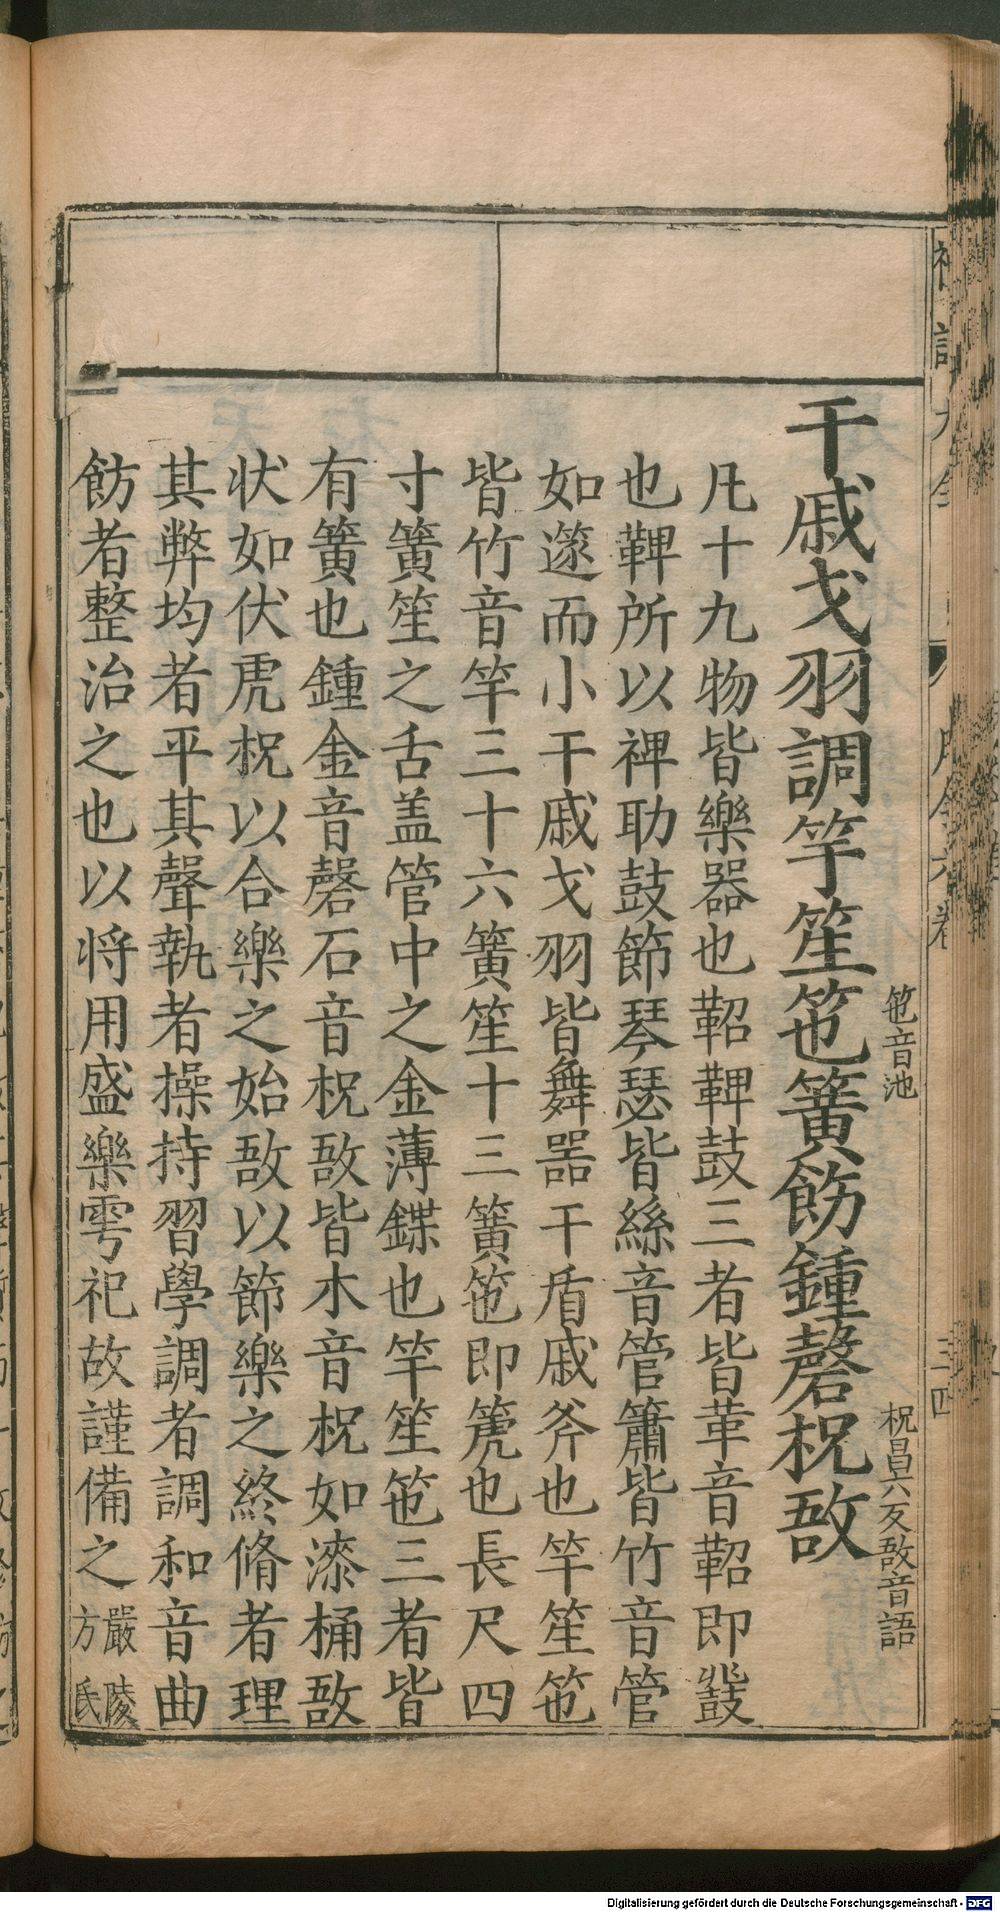 干戚戈羽調竽笙竾簧飭鍾磬柷敔
竾音池
柷昌六反敔音語
凡十九物皆樂器也鞀鞞鼓三者皆革音鞀即鼗
也鞞所以裨助鼓節琴瑟皆絲音管簫皆竹音管
如篴而小干戚戈羽皆舞器干盾戚斧也竽笙竾
皆竹音竽三十六簧笙十三簧竾即篪也長尺四
寸簧笙之舌盖管中之金薄鍱也竽笙竾三者皆
有簧也鍾金音磬石音柷敔皆木音柷如漆桶敔
状如伏虎柷以合樂之始敔以節樂之終脩者理
其弊均者平其聲執者操持習學調者調和音曲
飭者整治之也以将用盛樂雩祀故謹備之
嚴陵
方氏
Digitalisierung gefördert durch die Deutsche Forschungsgemeinschaft - DFG